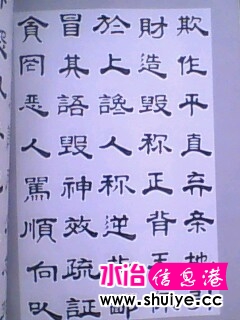 貪冒於財欺
罔其上造作
惡語讒毀平
人毀人称直
罵神称正弃
順效逆背亲
向疏指天地
以証鄙
水冶信息港
www.shuiye.cc